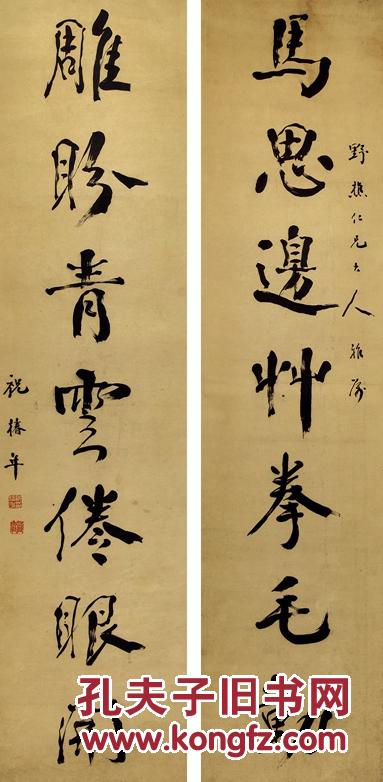 馬思邊艸拳毛動
野樵仁兄大人雅屬
雕盼青雲倦眼開
祝椿年
孔夫子旧书网
www.kongfz.com